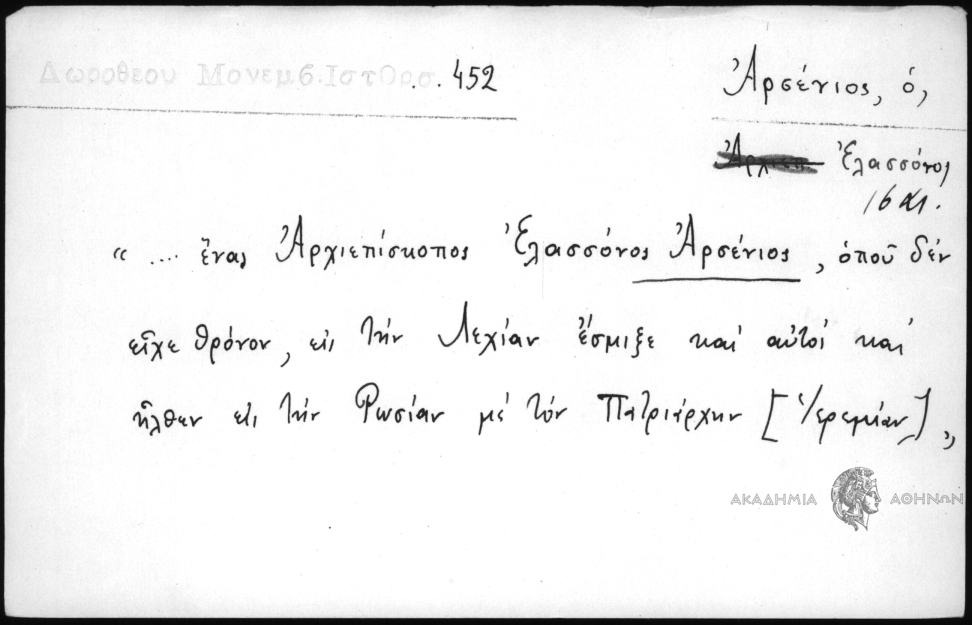 Δωροθεου Μονεμβ. Ιστορ. . . 452
Ἀρσένιος, ὁ,
Ἐλασσόνος
"... ἕνας Ἀρχιεπίσκοπος Ἐλασσόνος Ἀρσένιος, ὁποῦ δέν
εἶχε θρόνον, εἰς τήν Λεχίαν ἔσμιξε καί αὐτοί καί
ἦλθεν εἰς τήν Ρωσίαν μέ τόν Πατριάρχην [Ἱερεμίαν]"
ΑΚΑΔΗΜΙΑ ΑΘΗΝΩΝ